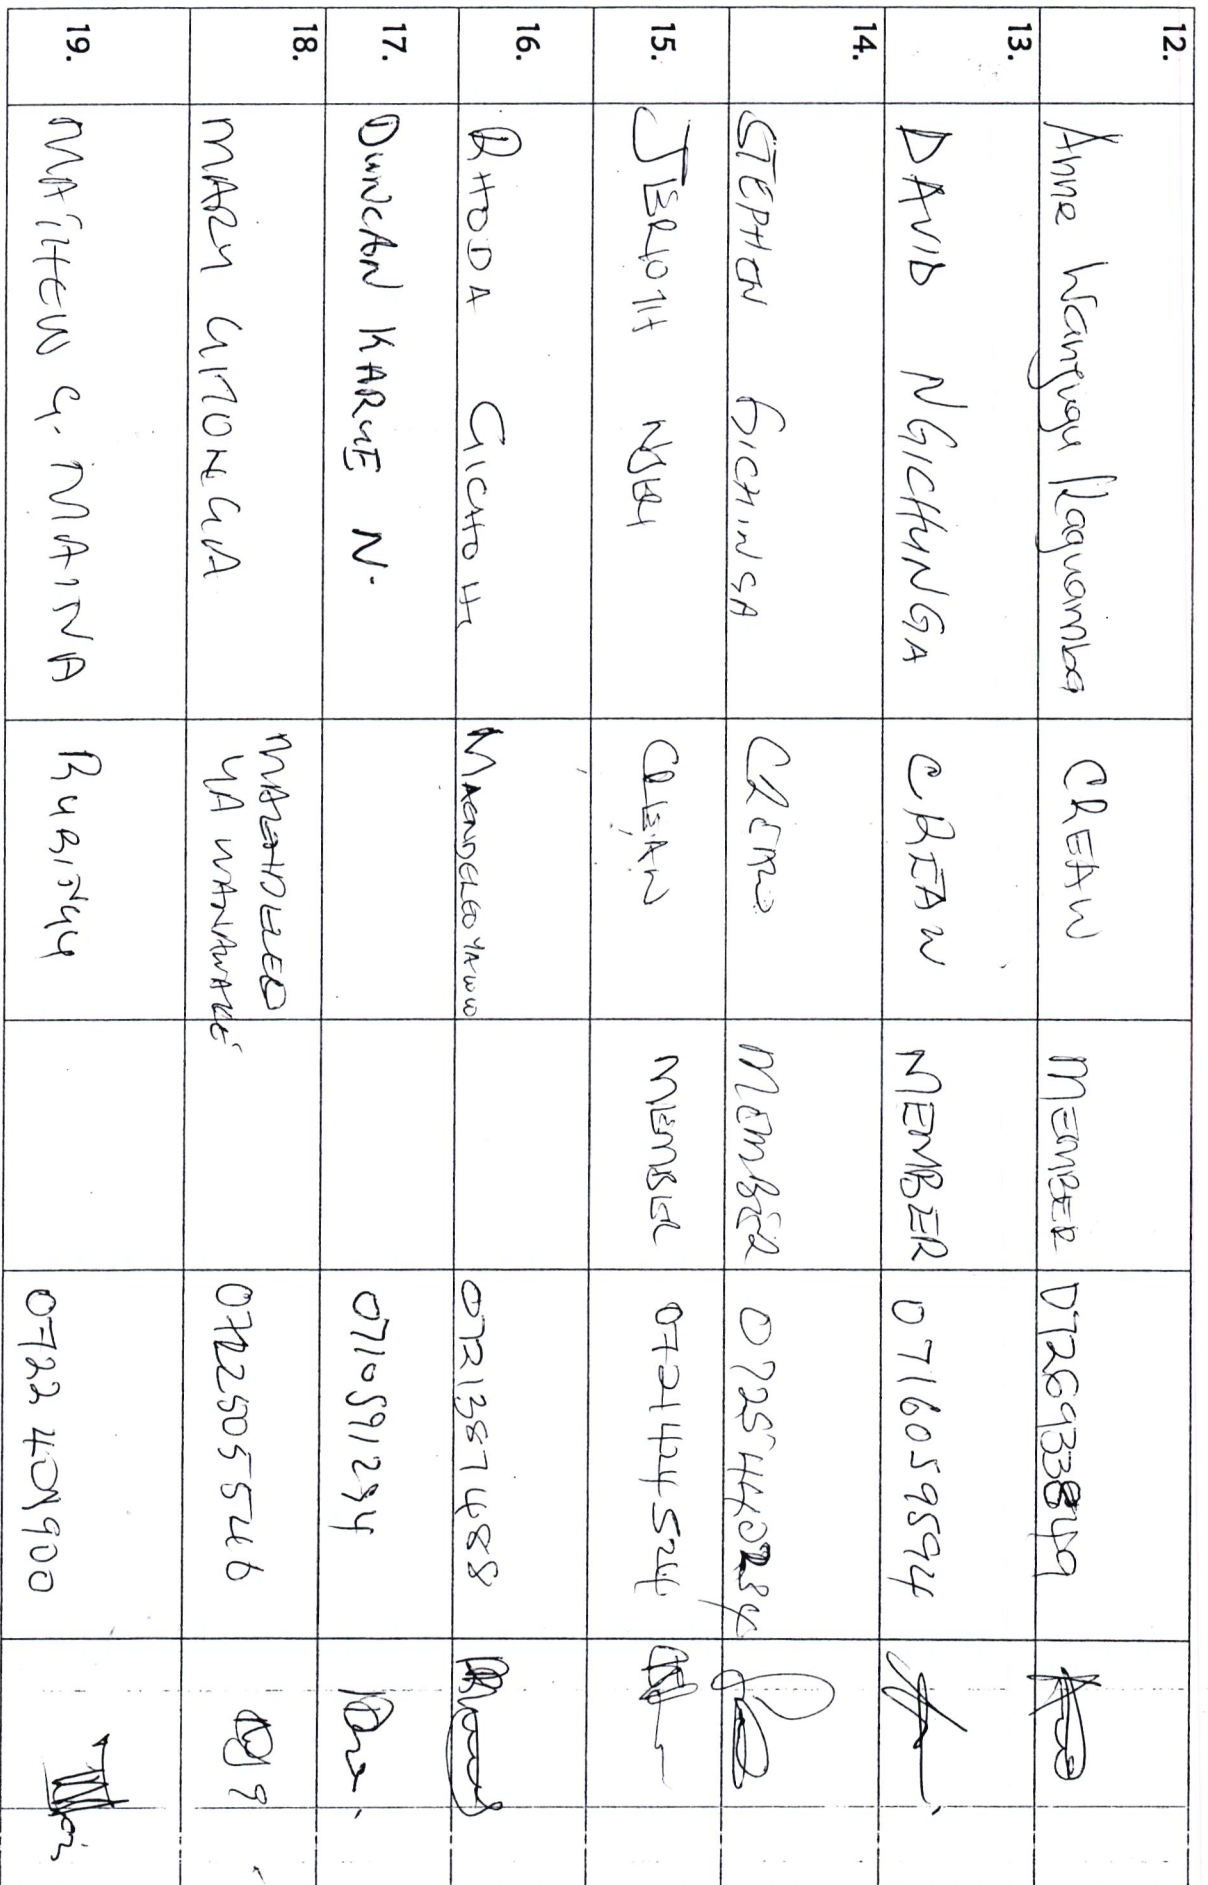 12. Anne Wangugu Kaguamba CREAW MEMBER 0726933849
13. DAVID NGICHUNGA CREAW MEMBER 0716059594
14. STEPHEN GICHINGA CREAW MEMBER
15. JERIOTH NJERI CREAW MEMBER 0721424524
16. RHODA GICHOHI MAENDELEO YA WW 0721387488
17. DUNCAN KARUE N. 0710591294
18. MARY GITONGA MAENDELEO
YA WANAWAKE 0722505546
19. MATHEW G. MAINA RUBINGU 0722 409900